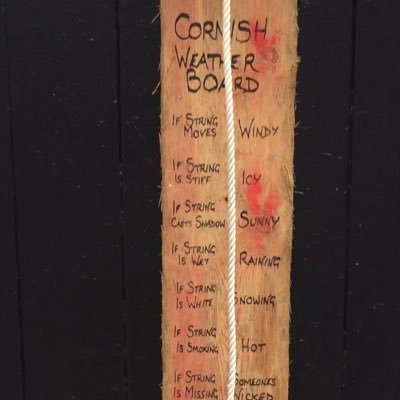 CORNISH
WEATHER
BOARD
IF STRING
MOVES WINDY
IF STRING
IS STIFF ICY
IF STRING
CASTS SHADOW SUNNY
IF STRING
IS WET RAINING
IF STRING
IS WHITE SNOWING
IF STRING
IS SMOKING HOT
IF STRING SOMEONES
IS MISSING NICKED